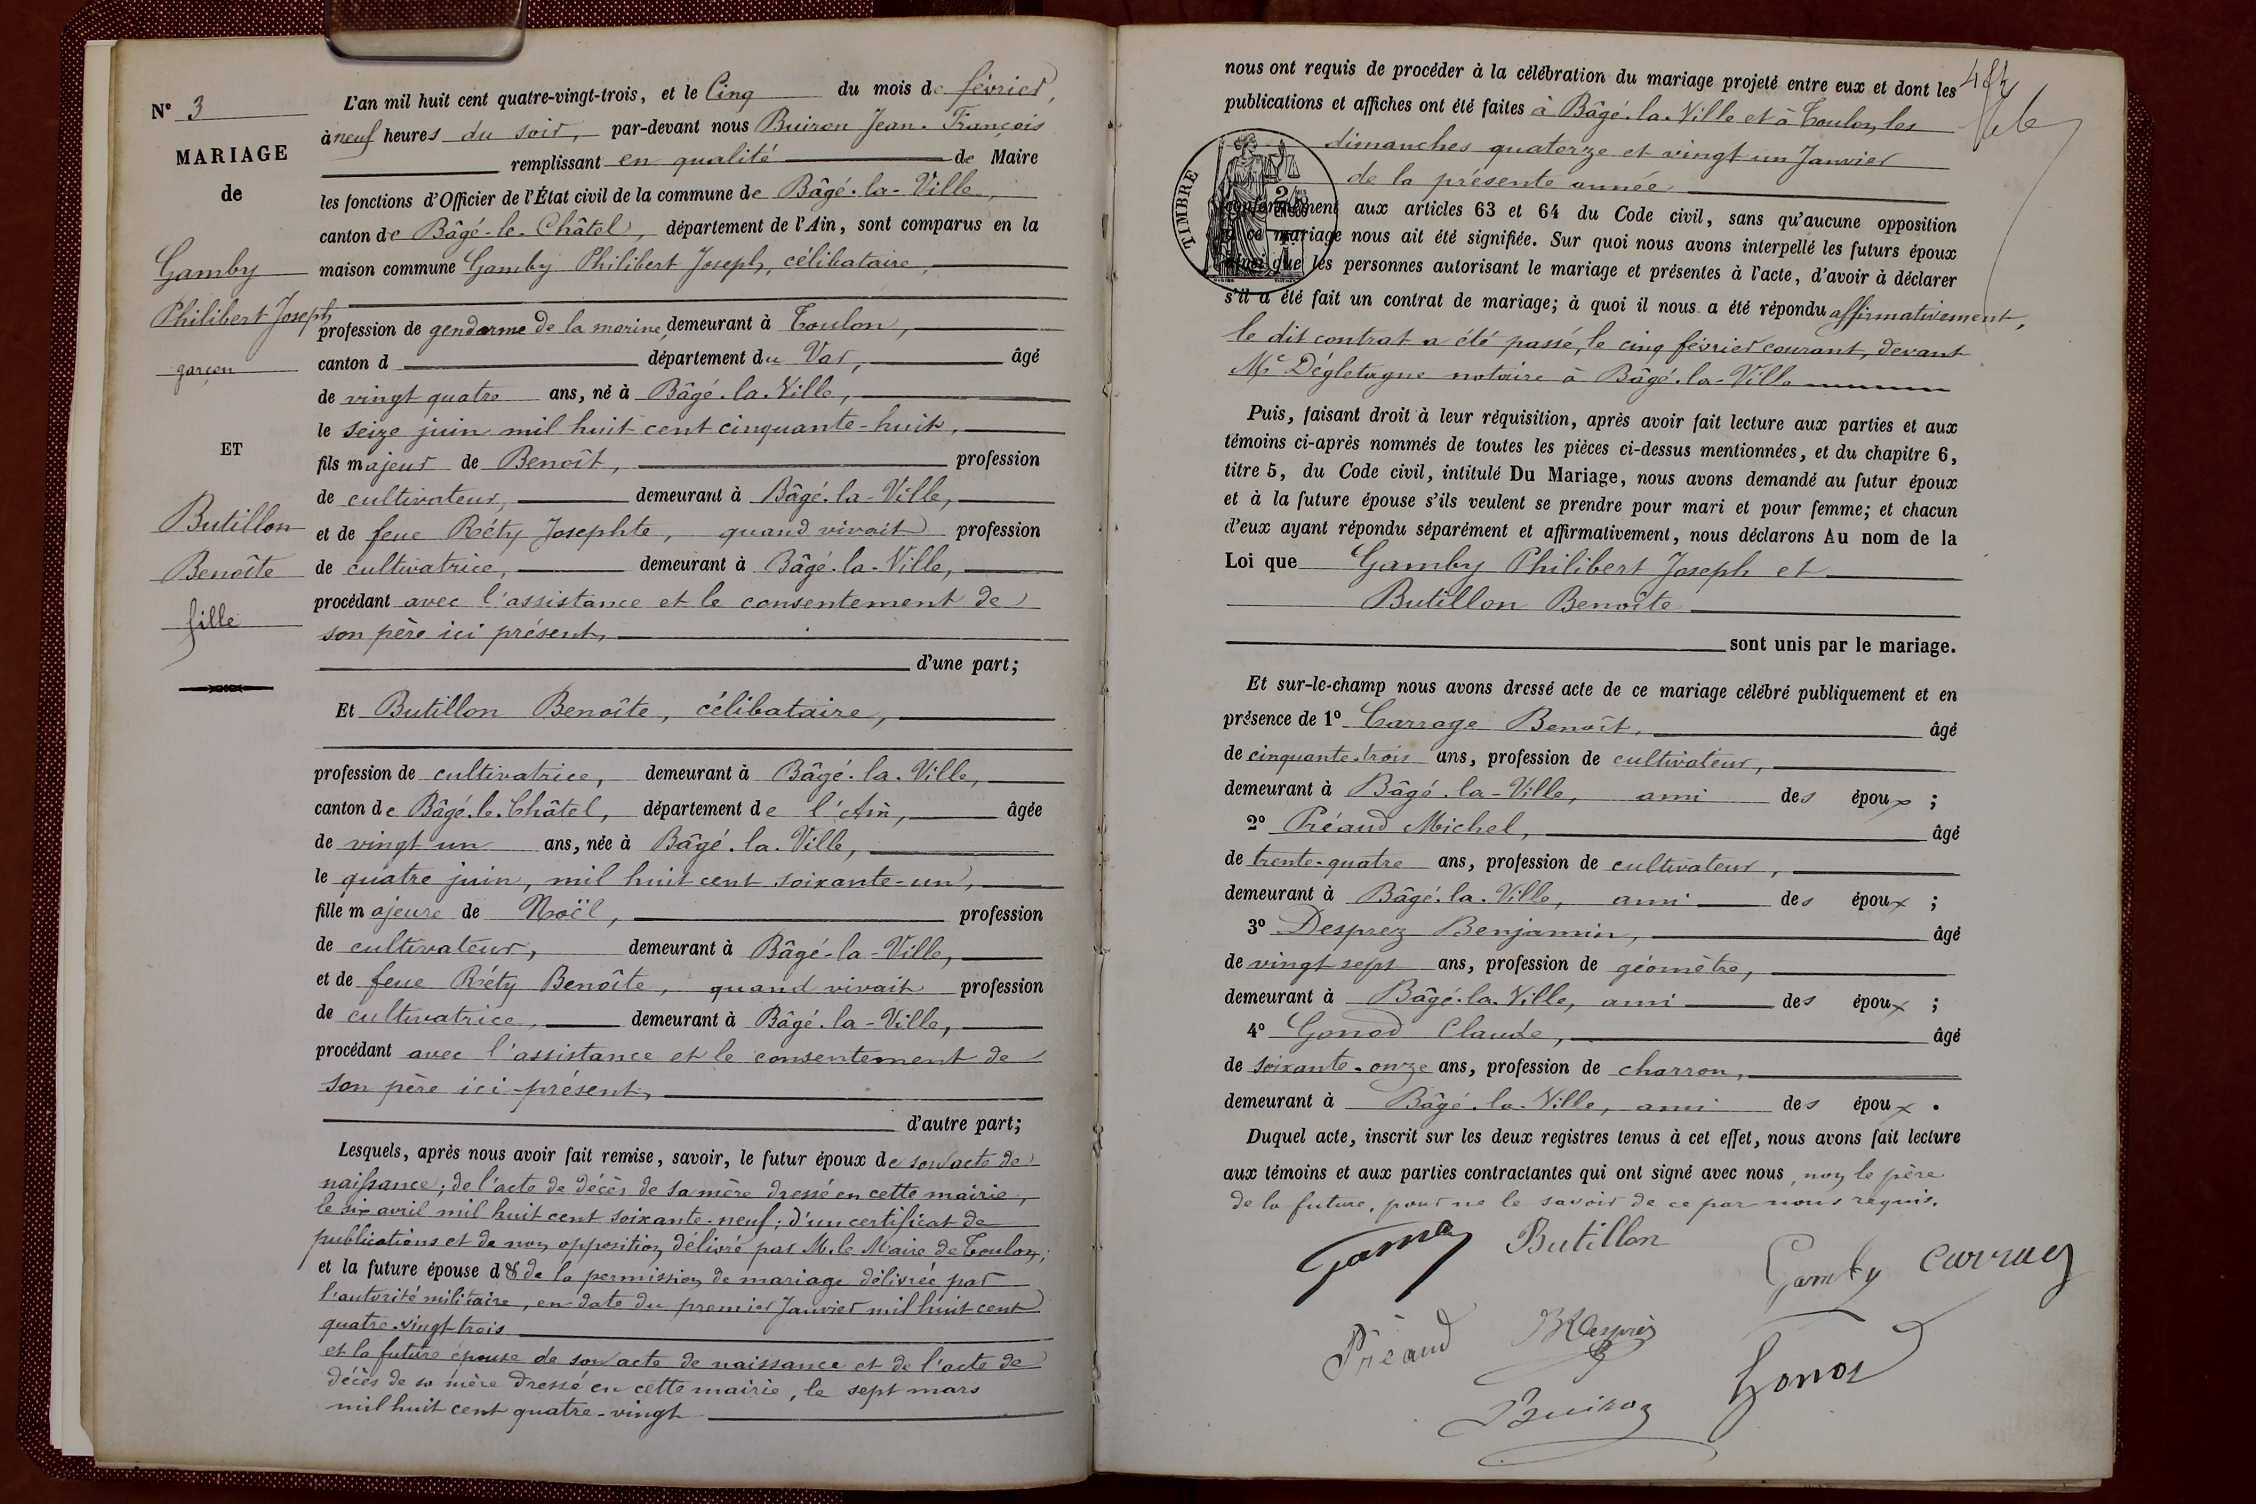 N° 3
MARIAGE
de
Gamby
Philibert Joseph
garçon
ET
Butillon
Benoîte
fille
L'an mil huit cent quatre-vingt-trois, et le Cinq du mois de février,
à neuf heures du soir, par-devant nous Buiron Jean-François
remplissant en qualité de Maire
les fonctions d'Officier de l'État civil de la commune de Bâgé-la-Ville,
canton de Bâgé-le-Châtel, département de l'Ain, sont comparus en la
maison commune Gamby Philibert Joseph, célibataire,
profession de gendarme de la marine, demeurant à Toulon,
canton d département du Var, âgé
de vingt quatre ans, né à Bâgé-la-Ville,
le seize juin mil huit cent cinquante-huit,
fils majeur de Benoît, profession
de cultivateur, demeurant à Bâgé-la-Ville,
et de feue Réty Josephte, quand vivait profession
de cultivatrice, demeurant à Bâgé-la-Ville,
procédant avec l'assistance et le consentement de
son père ici présent,
d'une part;
Et Butillon Benoîte, célibataire,
profession de cultivatrice, demeurant à Bâgé-la-Ville,
canton de Bâgé-le-Châtel, département de l'Ain, âgée
de vingt un ans, née à Bâgé-la-Ville,
le quatre juin, mil huit cent soixante-un,
fille majeure de Noël, profession
de cultivateur, demeurant à Bâgé-la-Ville,
et de feue Réty Benoîte, quand vivait profession
de cultivatrice, demeurant à Bâgé-la-Ville,
procédant avec l'assistance et le consentement de
son père ici présent,
d'autre part;
Lesquels, après nous avoir fait remise, savoir, le futur époux de son acte de
naissance; de l'acte de décès de sa mère dressé en cette mairie,
le six avril mil huit cent soixante-neuf; d'un certificat de
publications et de non opposition délivré par M. le Maire de Toulon;
et la future épouse d & de la permission de mariage délivrée par
l'autorité militaire, en date du premier Janvier mil huit cent
quatre-vingt trois
et la future épouse de son acte de naissance et de l'acte de
décès de sa mère dressé en cette mairie, le sept mars
mil huit cent quatre-vingt
nous ont requis de procéder à la célébration du mariage projeté entre eux et dont les
publications et affiches ont été faites à Bâgé-la-Ville et à Toulon, les
dimanches quatorze et vingt un Janvier
de la présente année
TIMBRE
conformément aux articles 63 et 64 du Code civil, sans qu'aucune opposition
à ce mariage nous ait été signifiée. Sur quoi nous avons interpellé les futurs époux
ainsi que les personnes autorisant le mariage et présentes à l'acte, d'avoir à déclarer
s'il a été fait un contrat de mariage; à quoi il nous a été répondu affirmativement,
le dit contrat a été passé, le cinq février courant, devant
Me Dégletagne notaire à Bâgé-la-Ville
Puis, faisant droit à leur réquisition, après avoir fait lecture aux parties et aux
témoins ci-après nommés de toutes les pièces ci-dessus mentionnées, et du chapitre 6,
titre 5, du Code civil, intitulé Du Mariage, nous avons demandé au futur époux
et à la future épouse s'ils veulent se prendre pour mari et pour femme; et chacun
d'eux ayant répondu séparément et affirmativement, nous déclarons Au nom de la
Loi que Gamby Philibert Joseph et
Butillon Benoîte
sont unis par le mariage.
Et sur-le-champ nous avons dressé acte de ce mariage célébré publiquement et en
présence de 1° Carrage Benoît, âgé
de cinquante-trois ans, profession de cultivateur,
demeurant à Bâgé-la-Ville, ami des époux;
2° Préaud Michel, âgé
de trente-quatre ans, profession de cultivateur,
demeurant à Bâgé-la-Ville, ami des époux;
3° Desprez Benjamin, âgé
de vingt sept ans, profession de géomètre,
demeurant à Bâgé-la-Ville, ami des époux;
4° Gonod Claude, âgé
de soixante-onze ans, profession de charron,
demeurant à Bâgé-la-Ville, ami des époux.
Duquel acte, inscrit sur les deux registres tenus à cet effet, nous avons fait lecture
aux témoins et aux parties contractantes qui ont signé avec nous, non le père
de la future, pour ne le savoir de ce par nous requis.
Gamby Butillon Gamby
Préaud
Buiron Gonod